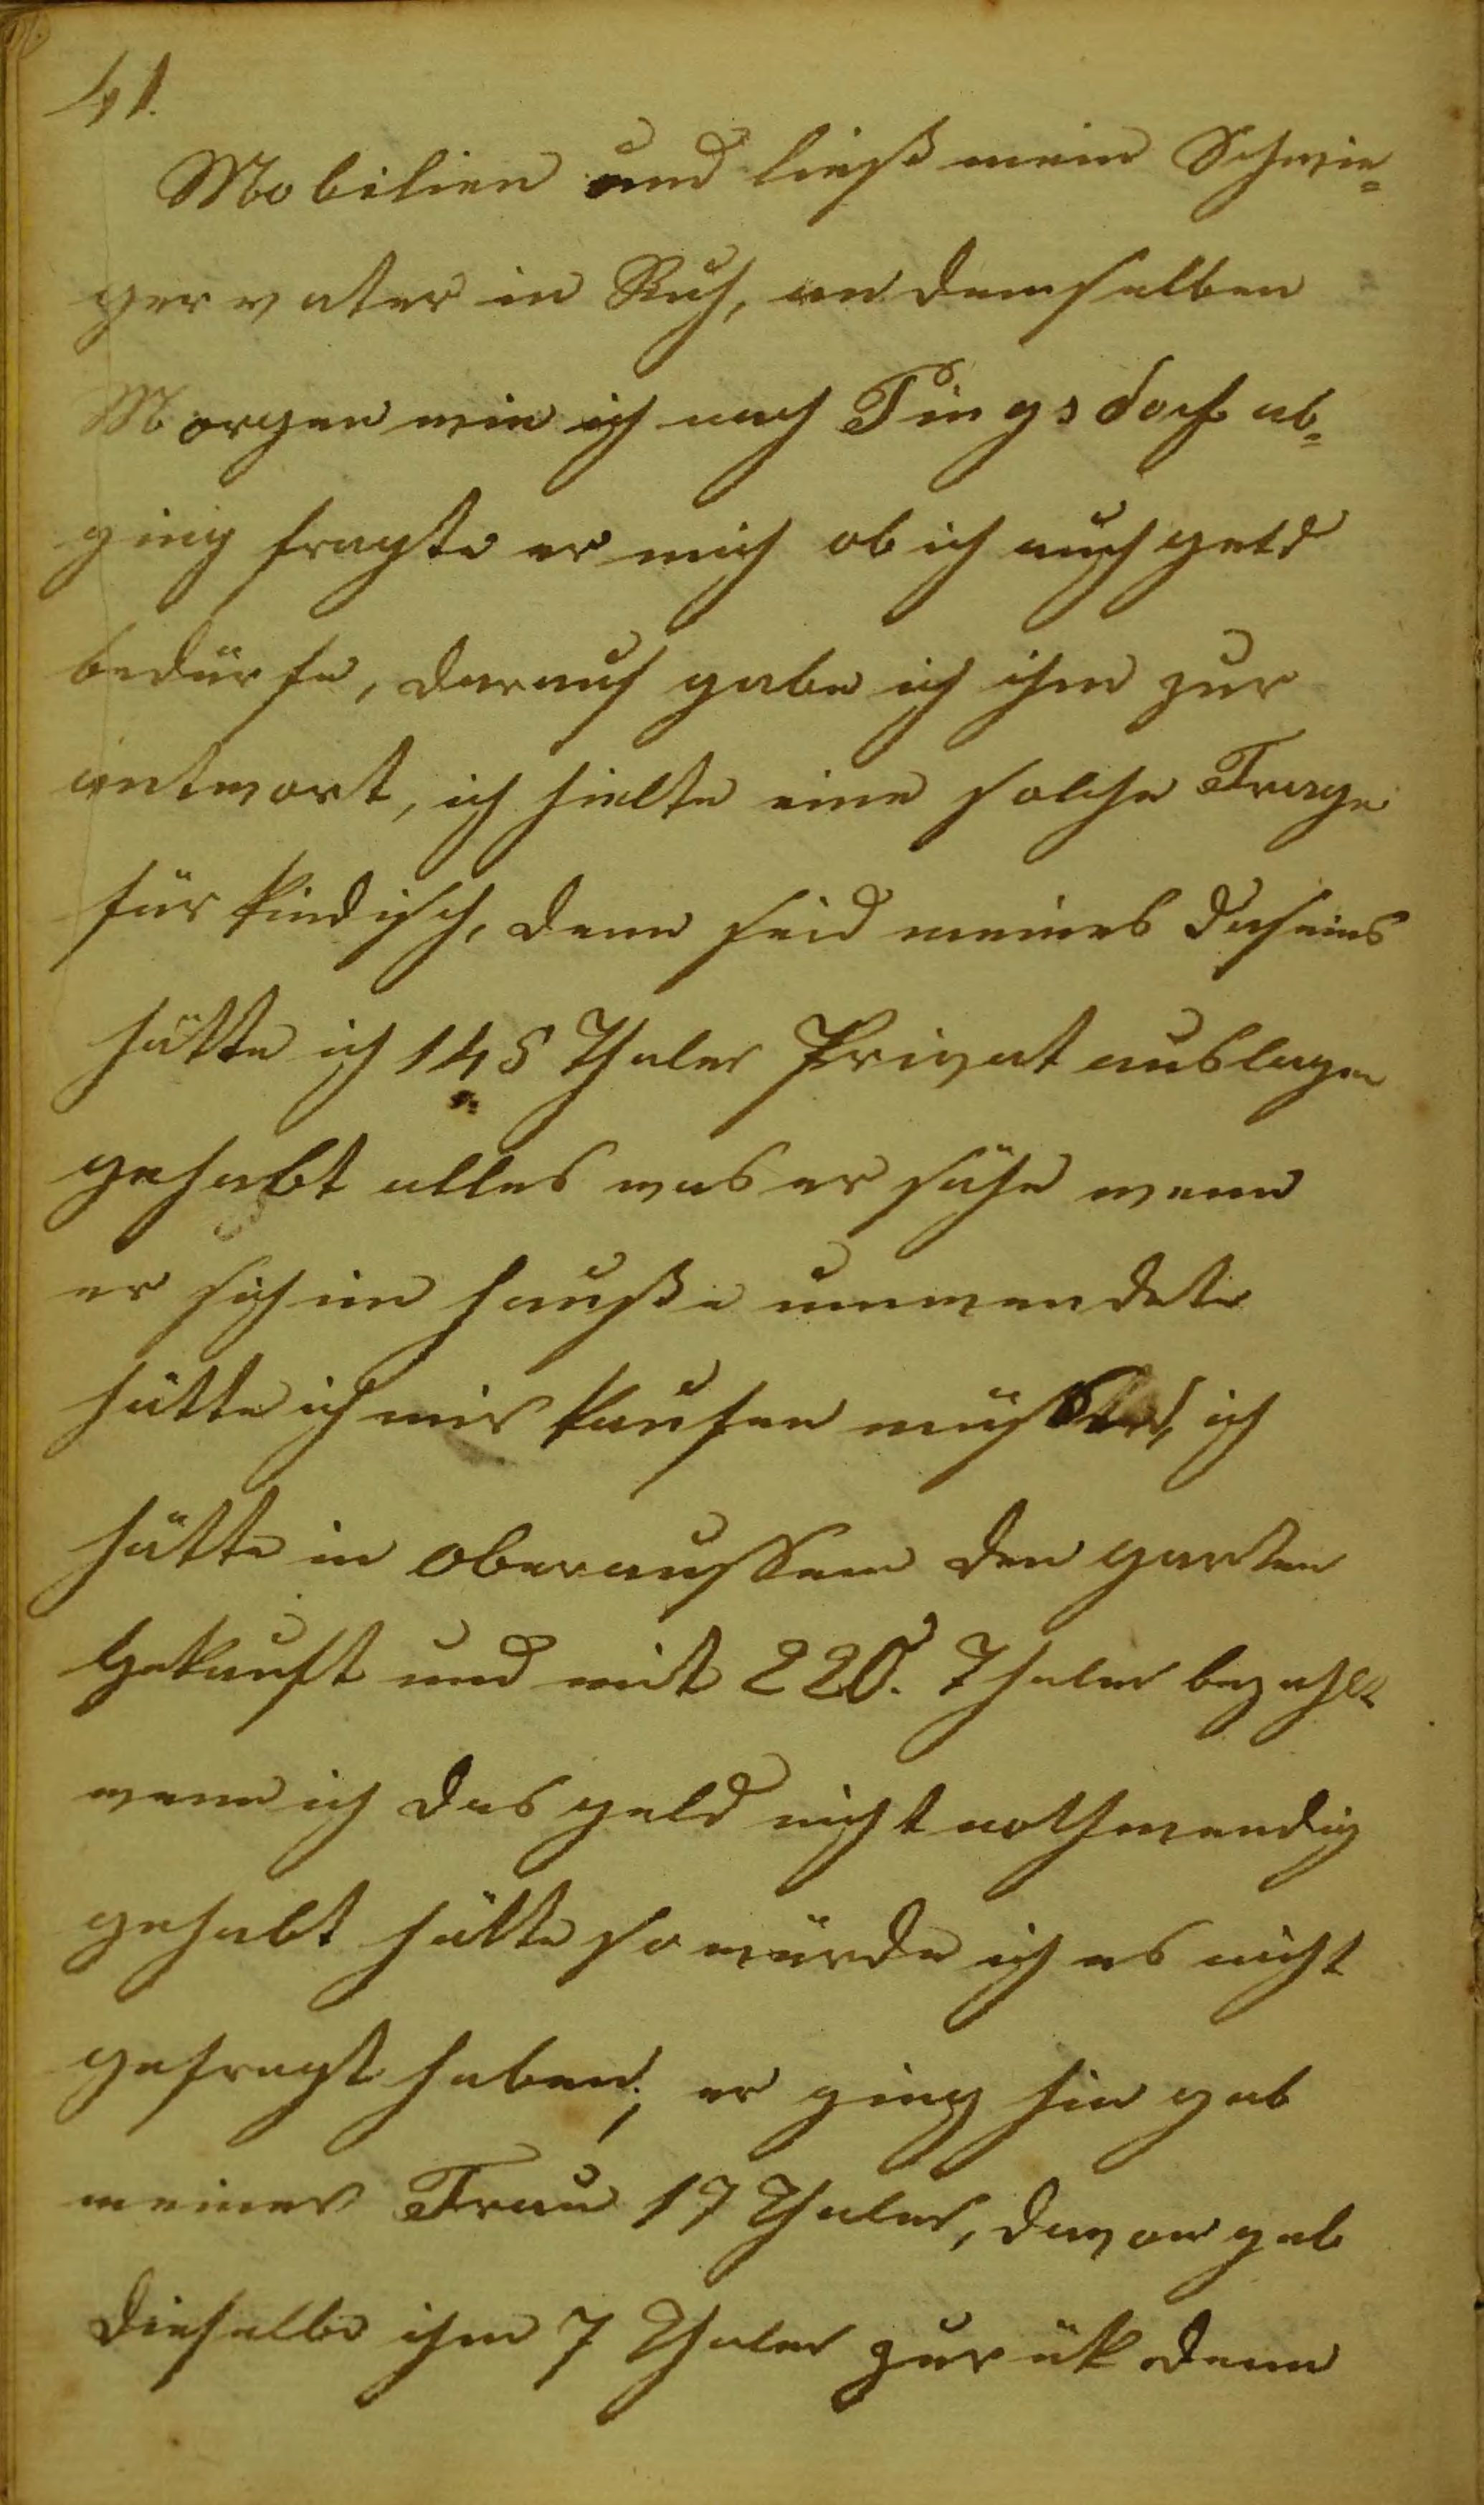 41.
Mobilien und ließ mein Schwie=
gervater in Ruh, an demselben
Morgen wie ich nach Pingsdorf ab=
ging fragte er mich ob ich auch geld
bedürfe, darauf gabe ich ihm zur
antwort, ich hielte eine solche Frage
für kindisch, denn seid meines daseins
hätte ich 145 Thaler Privat auslagen
gehabt alles was er sähe wenn
er sich im hauße umwendete
hätte ich mir kaufen müssen, ich
hätte in oberaussem den garten
gekauft und mit 220. Thaler bezahlt
wenn ich das geld nicht nothwendig
gehabt hätte so würde ich es nicht
gefragt haben; er ging hin gab
meiner Frau 17 Thaler, davon gab
dieselbe ihm 7 Thaler zurük denn